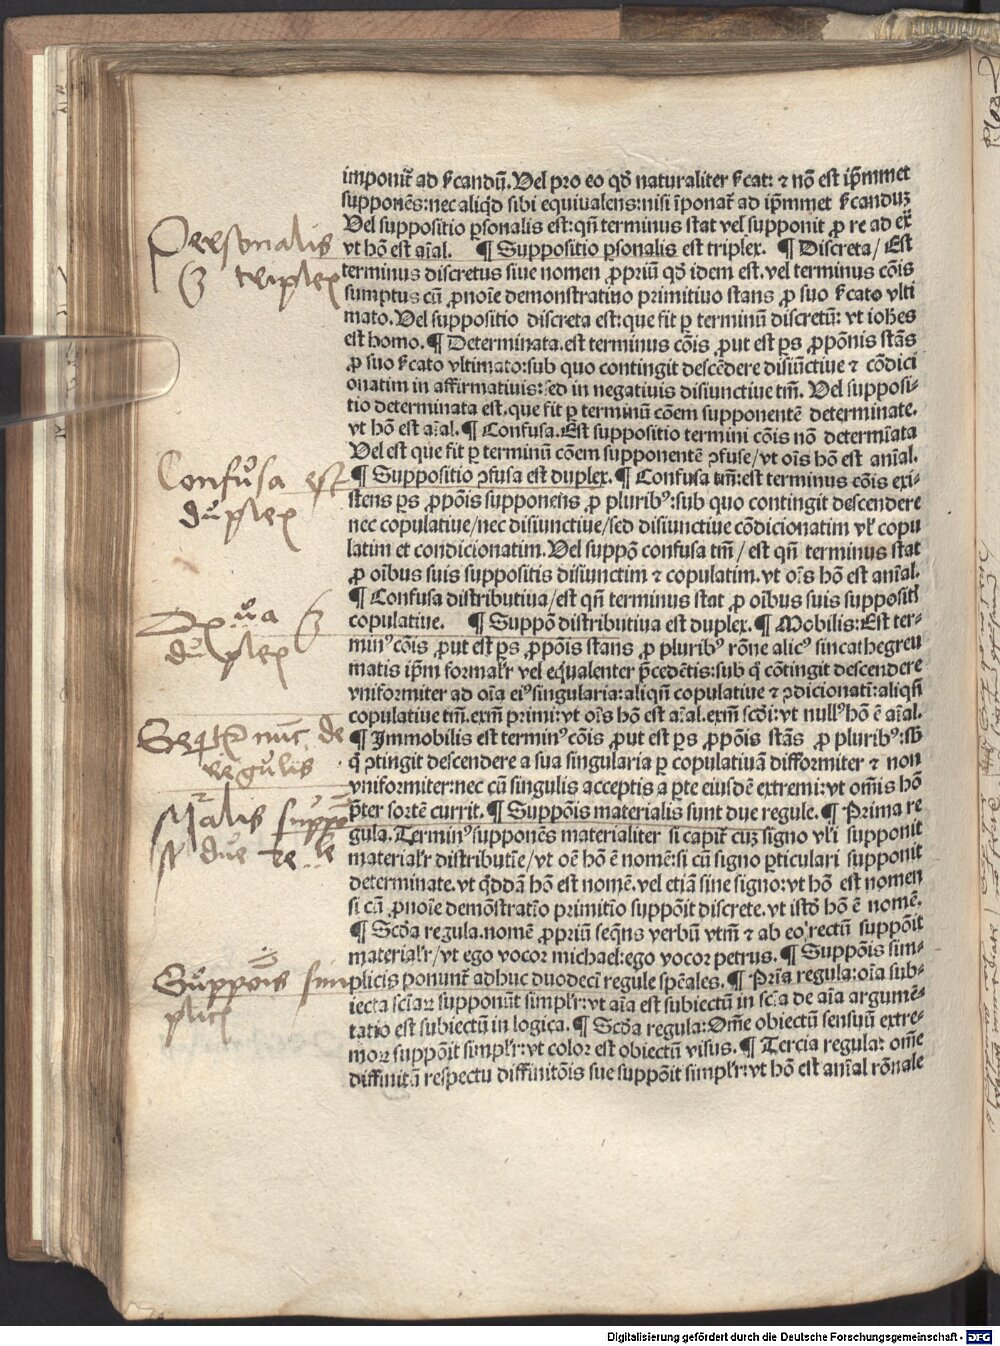 imponit᷑ ad ẜcandū. Vel pro eo qđ naturaliter ẜcat: ⁊ nō est ip̄mmet
supponēs: nec aliqđ sibi equiualens: nisi īponat᷑ ad ip̄mmet ẜcanduꝫ
Vel suppositio ꝑsonalis est: qn̄ terminus stat vel supponit ꝓ re ad ex̄
vt hō est aīal. ¶ Suppositio ꝑsonalis est triplex. ¶ Discreta / Est
terminus discretus siue nomen ꝓpriū qđ idem est. vel terminus cōis
sumptus cū ꝓnoīe demonstratiuo primitiuo stans ꝓ suo ẜcato vlti
mato. Vel suppositio discreta est: que fit ꝑ terminū discretū: vt ioh̄es
est homo. ¶ Determinata. est terminus cōis ꝓut est ꝑs ꝓpōnis stās
ꝓ suo ẜcato vltimato: sub quo contingit descēdere disiūctiue ⁊ cōdici
onatim in affirmatiuis: sed in negatiuis disiunctiue tm̄. Vel supposi-
tio determinata est. que fit ꝑ terminū cōem supponentē determinate.
vt hō est aīal. ¶ Confusa. Est suppositio termini cōis nō determīata
Vel est que fit ꝑ terminū cōem supponentē ꝯfuse / vt oīs hō est anīal.
¶ Suppositio ꝯfusa est duplex. ¶ Confusa tm̄: est terminus cōis exi-
stens ꝑs ꝓpōis supponens ꝓ pluribꝰ: sub quo contingit descendere
nec copulatiue / nec disiunctiue / sed disiunctiue cōdicionatim vl̕ copu
latim et condicionatim. Vel suppō confusa tm̄ / est qn̄ terminus stat
ꝓ oībus suis suppositis disiunctim ⁊ copulatim. vt oīs hō est anīal.
¶ Confusa distributiua / est qn̄ terminus stat ꝓ oībus suis suppositꝭ
copulatiue. ¶ Suppō distributiua est duplex. ¶ Mobilis: Est ter-
minꝰ cōis ꝓut est ꝑs ꝓpōis stans ꝓ pluribꝰ rōne alicꝰ sincathegreu
matis ip̄m formal̕r vel equalenter p̄cedētis: sub q̄ cōtingit descendere
vniformiter ad oīa eiꝰ singularia: aliqn̄ copulatiue ⁊ ꝯdicionatī: aliqn̄
copulatiue tm̄. exm̄ primi: vt oīs hō est aīal. exm̄ scđi: vt nullꝰ hō ē aīal.
¶ Immobilis est terminꝰ cōis ꝓut est ꝑs ꝓpōis stās ꝓ pluribꝰ: sb̄
q̄ ꝯtingit descendere a sua singularia ꝑ copulatiuā difformiter ⁊ non
vniformiter: nec cū singulis acceptis a ꝑte eiusdē extremi: vt omīs hō
p̄ter sortē currit. ¶ Suppōis materialis sunt due regule. ¶ Prima re
gula. Terminꝰ supponēs materialiter si capit᷑ cuꝫ signo vl̕i supponit
material̕r distributīe / vt oē hō ē nomē: si cū signo ꝑticulari supponit
determinate. vt q̄ddā hō est nomē. vel etiā sine signo: vt hō est nomen
si cū ꝓnoīe demōstratīo primitīo suppōit discrete. vt istđ hō ē nomē.
¶ Scđa regula. nomē ꝓpriū seq̄ns verbū vtm̄ ⁊ ab eo rectū suppōit
material̕r / vt ego vocor michael: ego vocor petrus. ¶ Suppōis sim-
plicis ponunt᷑ adhuc duodecī regule sp̄cales. ¶ Prīa regula: oīa sub-
iecta scīaꝝ supponūt simpl̕r: vt aīa est subiectū in scīa de aīa argumē-
tatio est subiectū in logica. ¶ Scđa regula: Om̄e obiectū sensuū extre-
moꝝ suppōit simpl̕r: vt color est obiectū visus. ¶ Tercia regula: om̄e
diffinitū respectu diffinitōis sue suppōit simpl̕r: vt hō est anīal rōnale
Personalis
triplex
Confusa est
duplex
duplex
de
regulis
Mālis suppō
due
Suppōis sim
plicis
Digitalisierung gefördert durch die Deutsche Forschungsgemeinschaft - DFG